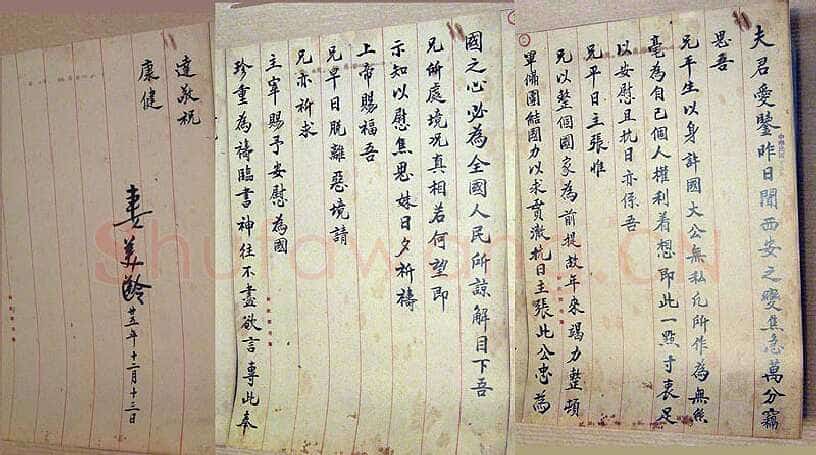 夫君愛鑒昨日聞西安之變焦急萬分竊
思吾
兄平生以身許國大公無私凡所作為無絲
毫為自己個人權利着想即此一點寸衷足
以安慰且抗日亦係吾
兄平日主張惟
兄以整個國家為前提故年來竭力整頓
軍備團結國力以求貫澈抗日主張此公忠為
國之心必為全國人民所諒解目下吾
兄所處境况真相若何望即
示知以慰焦思妹日夕祈禱
上帝賜福吾
兄早日脫離惡境請
兄亦祈求
主宰賜予安慰為國
珍重為禱臨書神往不盡欲言專此奉
達敬祝
康健
妻美齡 廿五年十二月十三日
Shufawang.CN